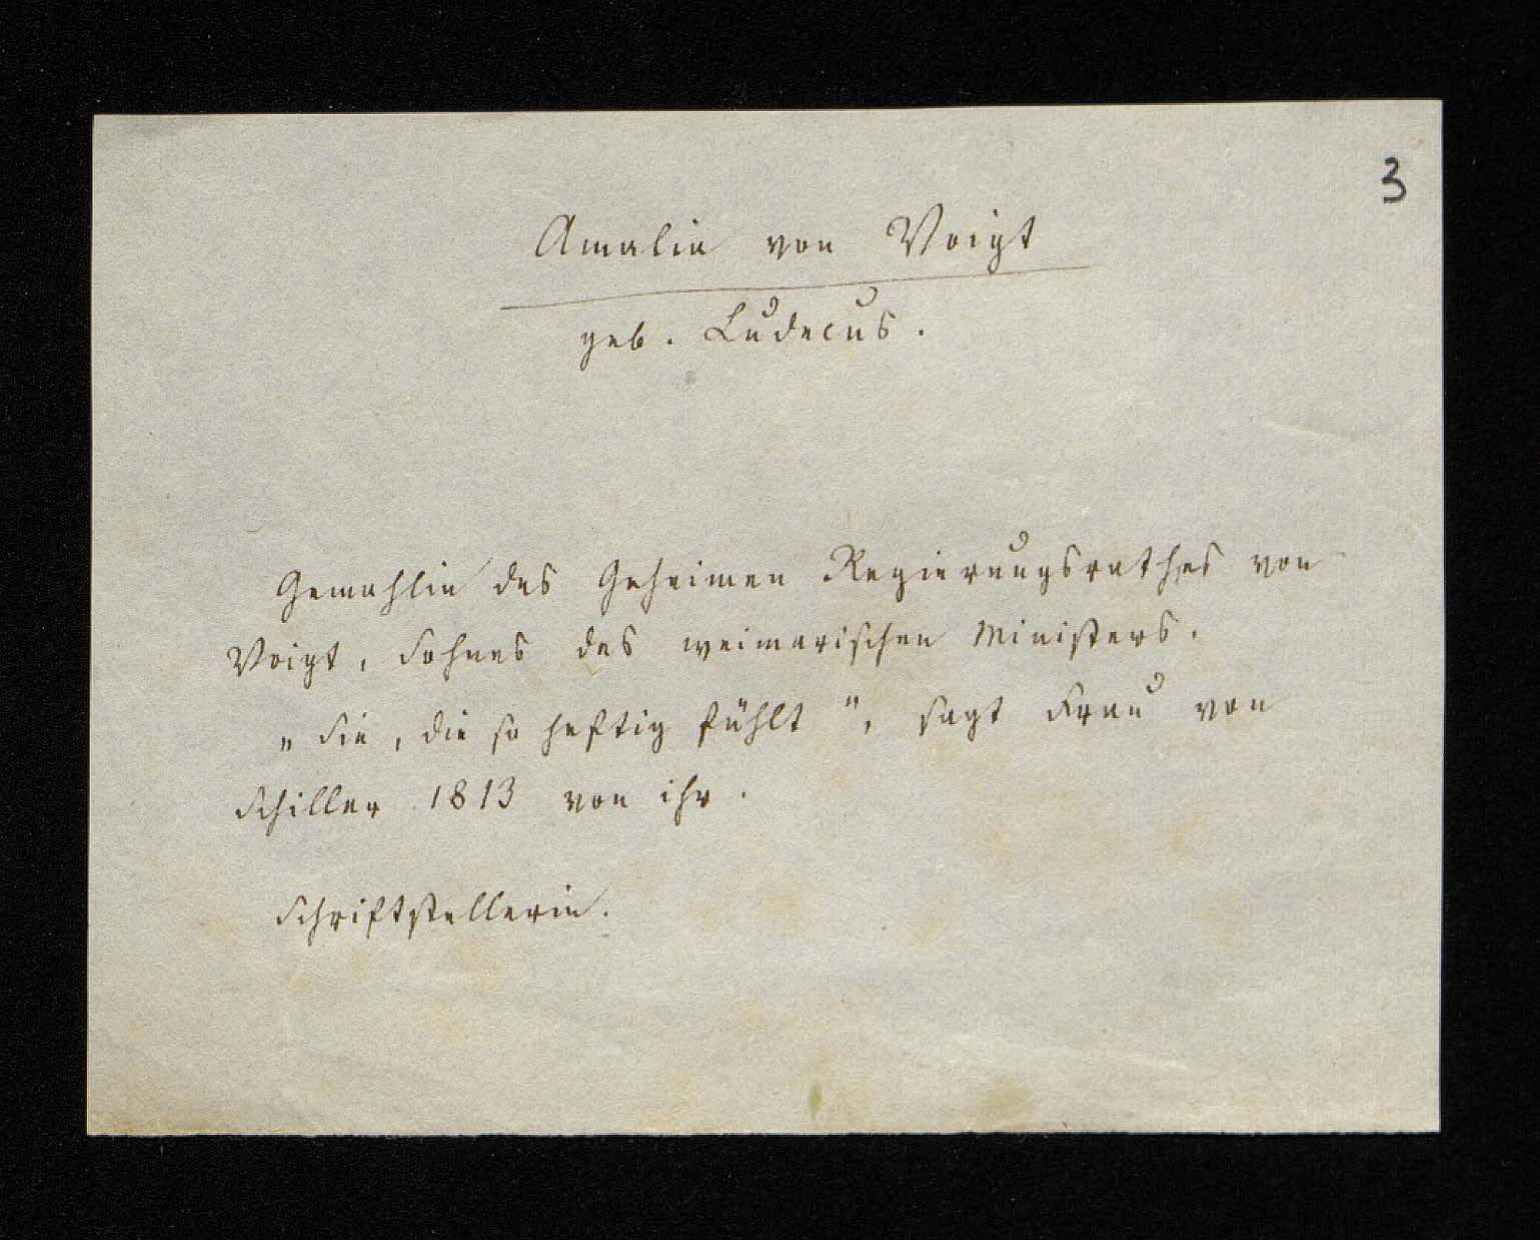 3
Amalie von Voigt
geb. Ludecus.
Gemahlin des Geheimen Regierungsrathes von
Voigt, Sohnes des weimarischen Ministers.
„Sie, die so heftig fühlt", sagt Frau von
Schiller 1813 von ihr.
Schriftstellerin.